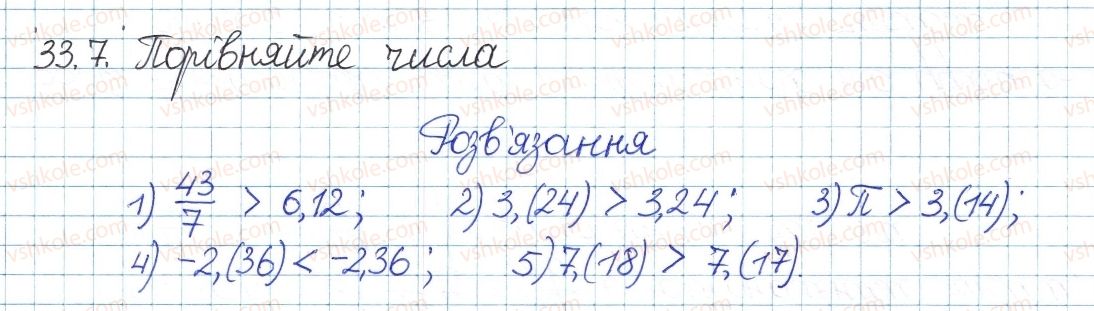 33.7. Порівняйте числа
Розв'язання
1) 43/7 > 6,12; 2) 3,(24) > 3,24; 3) π > 3,(14);
4) -2,(36) < -2,36; 5) 7,(18) > 7,(17).